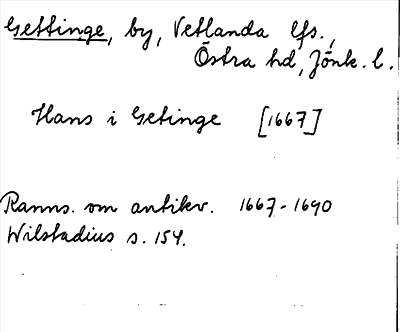 Gettinge, by, Vetlanda lfs.,
Östra hd, Jönk. l.
Hans i Getinge [1667]
Ranns. om antikv. 1667-1690
Wilstadius s. 154.